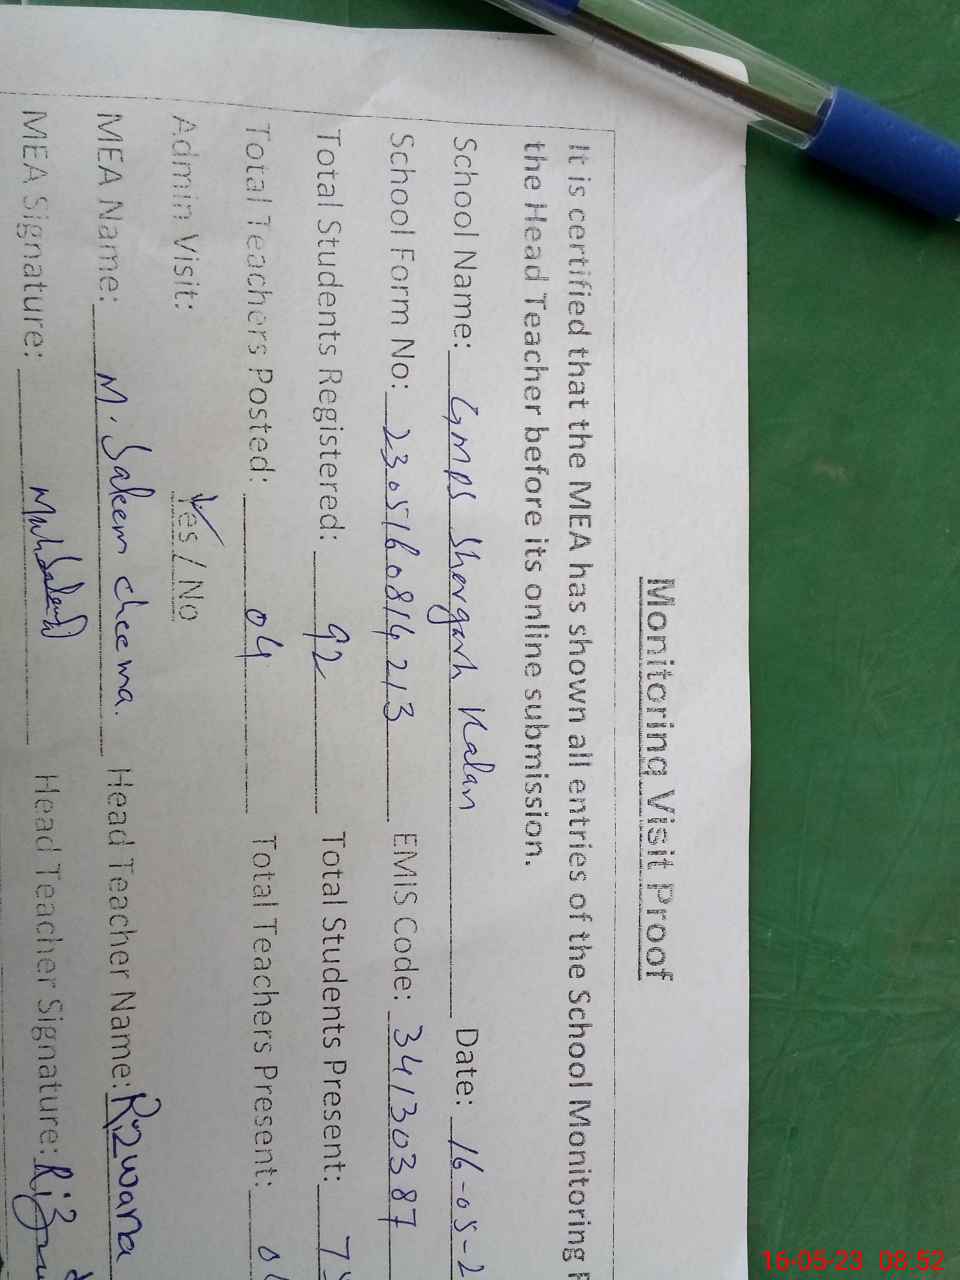 Monitoring Visit Proof
It is certified that the MEA has shown all entries of the School Monitoring
the Head Teacher before its online submission.
School Name: GMPS Shergarh Kalan Date: 16-05-2
School Form No: 2305160814213 EMIS Code: 34130387
Total Students Registered: 92 Total Students Present: 7
Total Teachers Posted: 04 Total Teachers Present: 0
Admin Visit: Yes / No
MEA Name: M. Saleem cheema. Head Teacher Name: Rizwana
MEA Signature: Head Teacher Signature:
16-05-23 08:52